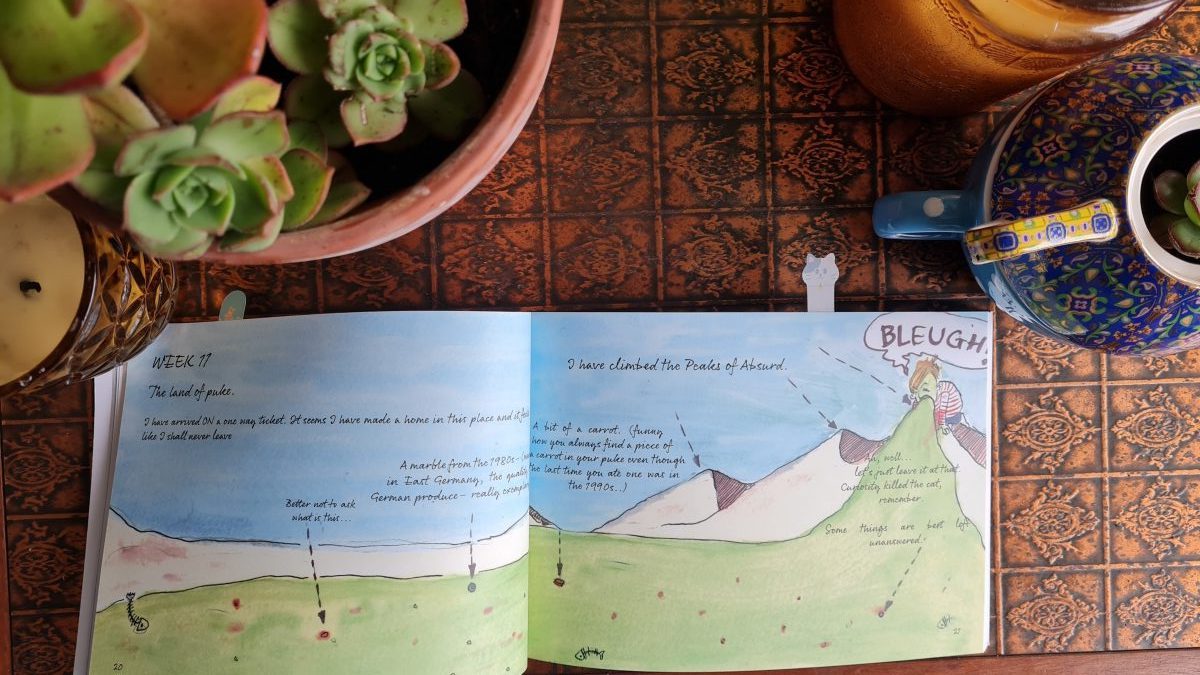 WEEK 11
The land of puke.
I have arrived ON a one way ticket. It seems I have made a home in this place and it
like I shall never leave
A marble from the 1980s -
in East Germany, the quality
German produce - really
Better not to ask
what is this...
20
I have climbed the Peaks of Absurd.
BLEUGH!
A bit of a carrot. (funny
how you always find a piece of
a carrot in your puke even though
the last time you ate one was in
the 1990s...)
well...
let's just leave it at that.
Curiosity killed the cat,
remember.
Some things are best left
unanswered.
21